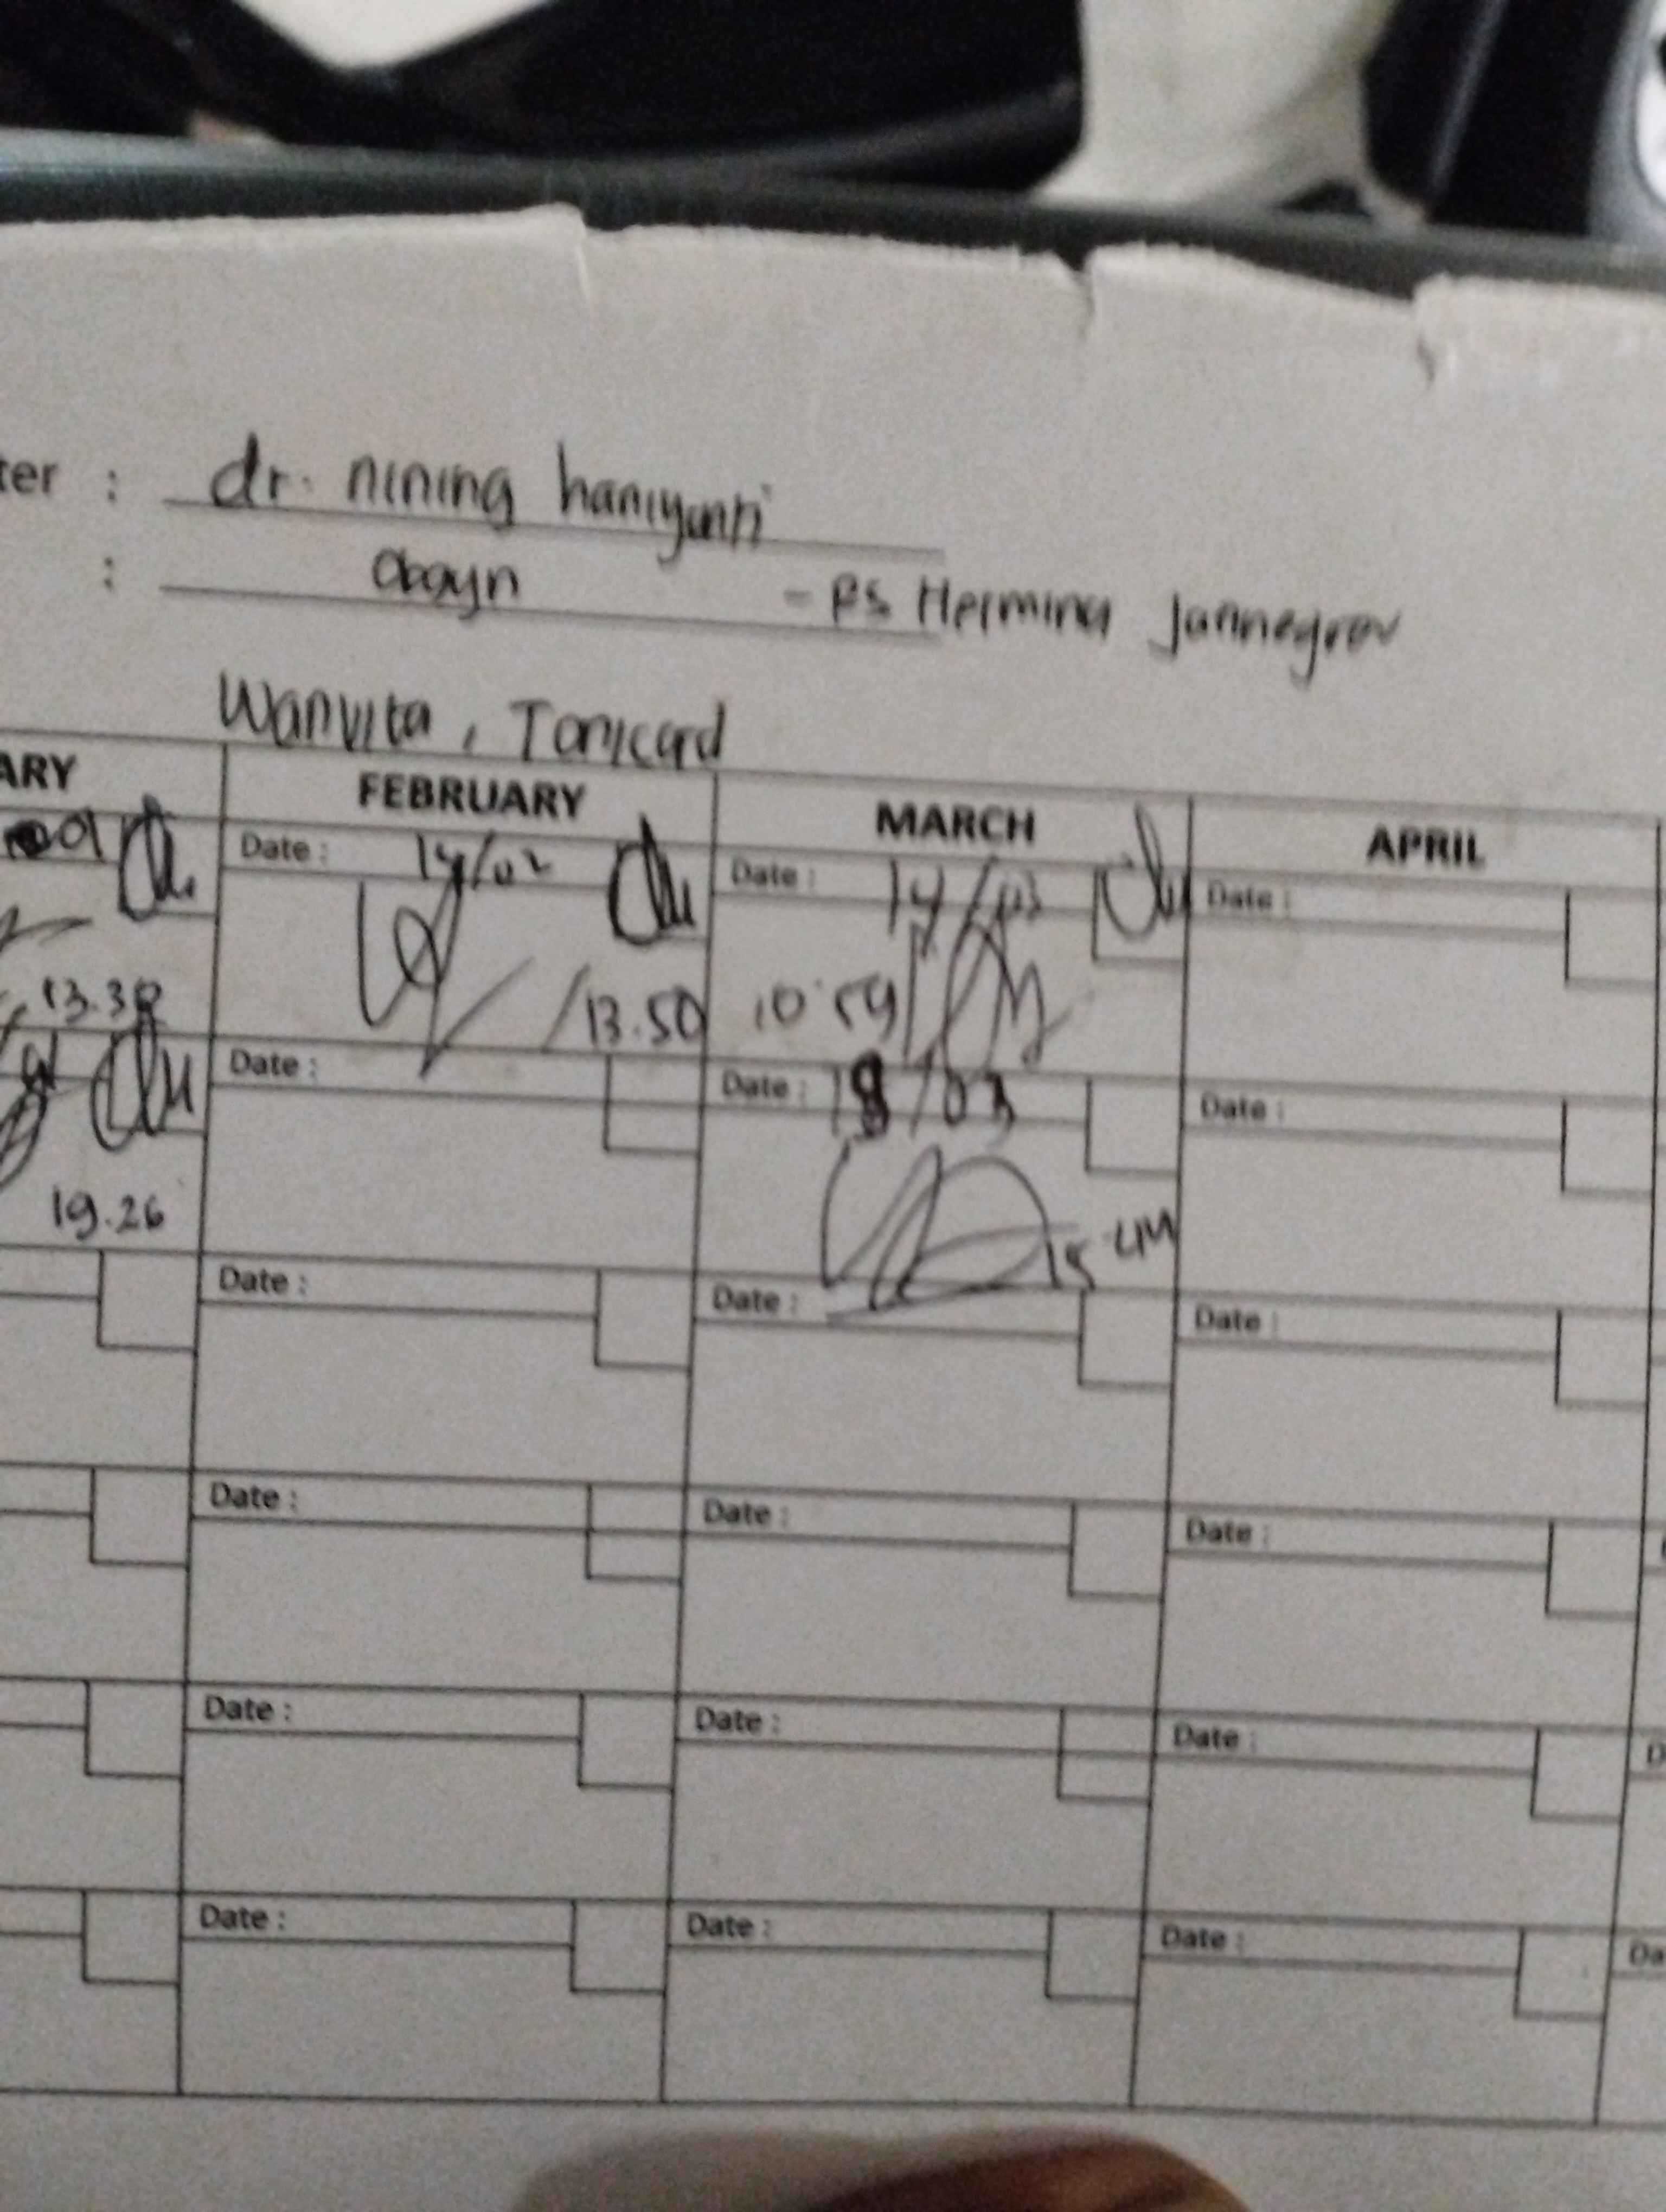 ter : dr. nining haniyanti
: Obgyn - RS Hermina
Wanvita, Tonicard
ARY FEBRUARY MARCH APRIL
Date : 14/02 Date : 14/03 Date :
13.30 13.50 10.59
Date : Date : 18/03 Date :
19.26 15.44
Date : Date : Date :
Date : Date : Date :
Date : Date : Date : D
Date : Date : Date : Da